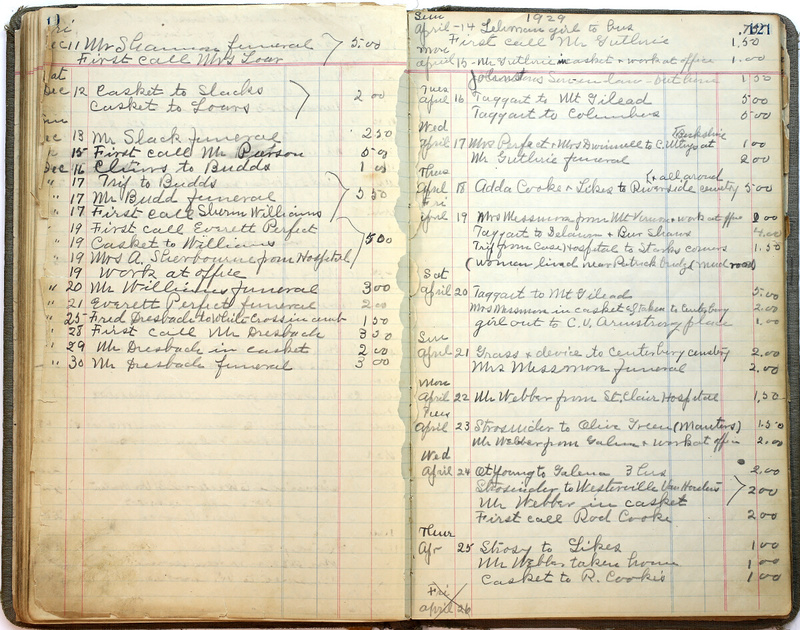 Fri
Dec 11 Mr Shannon funeral
First call Mrs Loar 5.00
Sat
Dec 12 Casket to Slacks
Casket to Loars 2 00
Sun
Dec 13 Mr Slack funeral 2 50
15 First call Mr Pierson 5 00
Dec 16 Chairs to Budds 1 00
" 17 Trip to Budds
" 17 Mr Budd funeral 5 50
" 17 First call Sherm Williams
19 First call Everett Perfect
" 19 Casket to Williams 5 00
" 19 Mrs A. Sherbourne from Hospital
19 Work at office
" 20 Mr Williams funeral 3 00
" 21 Everett Perfect funeral 2 00
" 25 Fred Dresbach to White Cross in amb 1 50
" 28 First call Mr Dresbach 3 50
" 29 Mr Dresbach in casket 2 00
" 30 Mr Dresbach funeral 3 00
Sun 1929
April - 14 Lehman girl to bus
First call Mr Guthrie 1.50
Mon
April 15 - Mr Guthrie in casket & work at office 1.00
Johnstons 1 50
Tues
April 16 Taggart to Mt Gilead 5 00
Taggart to Columbus 5 00
Wed Berkshire
April 17 Mrs Perfect & Mrs Dwinnell to C. at 1 00
Mr Guthrie funeral 2 00
Thurs (& all around
April 18 Adda Cooke & Likes to Riverside cemetry 5 00
Fri
April 19 Mrs Messmore from Mt Vernon & work at office 8 00
Taggart to Delaware & Bur Shaws 4.00
Trip from Case Hospital to Starks corners 1.50
(woman lived near Patrick bridge mud road)
Sat
April 20 Taggart to Mt Gilead 5.00
Mrs Messmore in casket & taken to Centerbury 2.00
girl out to C. V. Armstrong place 1.00
Sun
April 21 Grass & device to Centerbury cemetry 2.00
Mrs Messmore funeral 2.00
Mon
April 22 Mr Webber from St. Clair Hospital 1.50
Tues
April 23 Strosnider to Olive Green (Manters) 1.50
Mr Webber from Galena & work at office 2.00
Wed
April 24 Ot Young to Galena 3 2.00
Strosnider to Westerville Van Horders
Mr Webber in casket 2 00
First call Rod Cooke 2 00
Thur
Apr 25 Strosy to Likes 1 00
Mr Webber taken home 1 00
Casket to R. Cooke's 1 00
Fri
April 26